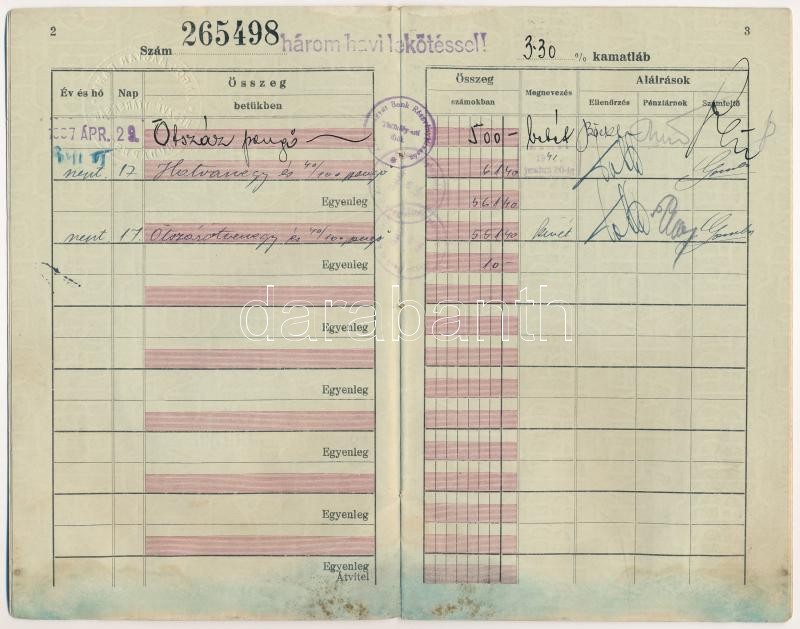 2
3
Szám 265498 három havi lekötéssel! 3·30 % kamatláb
Év és hó Nap Összeg betükben Összeg számokban Megnevezés Aláirások
Ellenőrzés Pénztárnok Számfejtő
ÁPR. 29. Ötszáz pengő 500— betét
szept. 17 Hatvanegy és 40/100 pengő 61 40
Egyenleg 561 40
szept 17 Ötszázötvenegy és 40/100 pengő 551 40 kivét
Egyenleg 10—
Egyenleg
Egyenleg
Egyenleg
Egyenleg
Egyenleg
Átvitel
darabanth